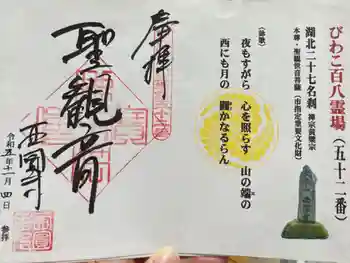 びわこ百八霊場(五十二番)
湖北二十七名刹 禅宗黄檗宗
本尊・聖観世音菩薩(市指定重要文化財)
(詠歌)
夜もすがら 心を照らす 山の端の
西にも月の 円かなるらん
奉拝
聖観音
西圓寺
令和五年十一月四日 参拝